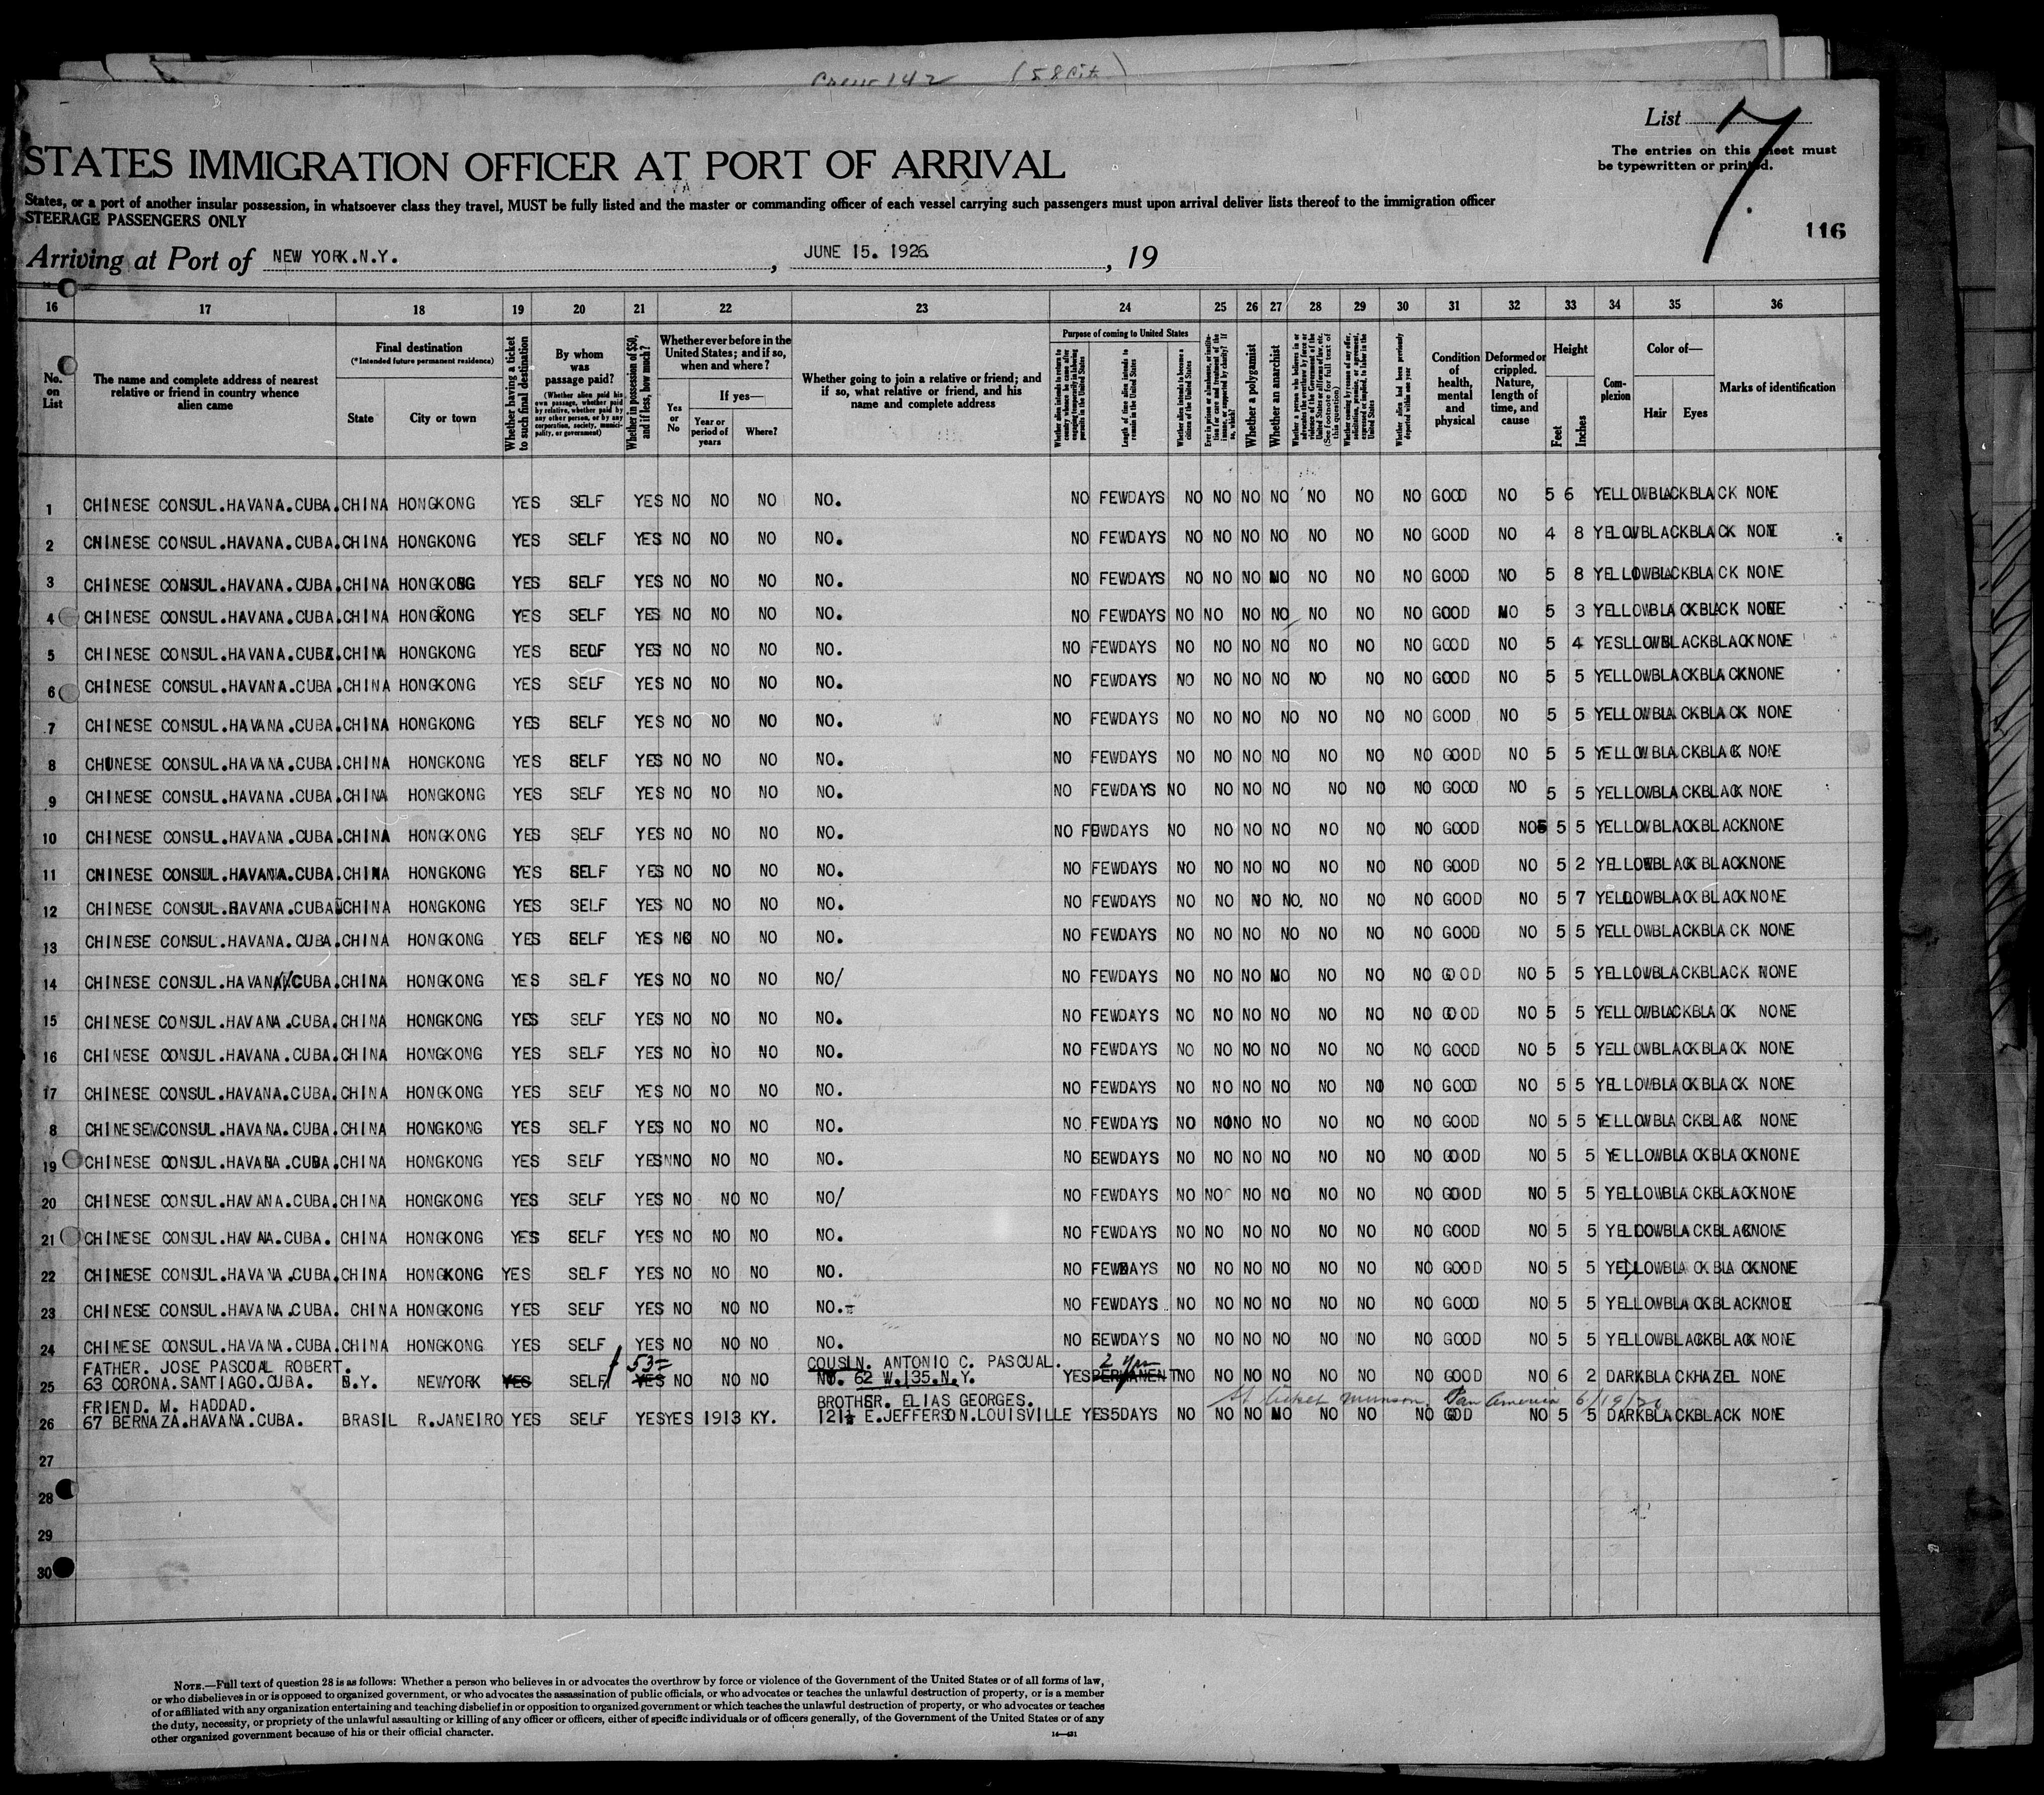 Crew 142 (58 Cit)
List 7
The entries on this sheet must
be typewritten or printed.
STATES IMMIGRATION OFFICER AT PORT OF ARRIVAL
States, or a port of another insular possession, in whatsoever class they travel, MUST be fully listed and the master or commanding officer of each vessel carrying such passengers must upon arrival deliver lists thereof to the immigration officer
STEERAGE PASSENGERS ONLY
116
Arriving at Port of NEW YORK.N.Y. , JUNE 15. 1926 , 19
16 17 18 19 20 21 22 23 24 25 26 27 28 29 30 31 32 33 34 35 36
No. on List
The name and complete address of nearest relative or friend in country whence alien came
Final destination
(*Intended future permanent residence)
State City or town
Whether having a ticket to such final destination
By whom was passage paid?
(Whether alien paid his own passage, whether paid by relative, whether paid by any other person, or by any corporation, society, municipality, or government)
Whether in possession of $50, and if less, how much?
Whether ever before in the United States; and if so, when and where?
Yes or No
If yes—
Year or period of years Where?
Whether going to join a relative or friend; and if so, what relative or friend, and his name and complete address
Purpose of coming to United States
Whether alien intends to return to country whence he came after engaging temporarily in laboring pursuits in the United States
Length of time alien intends to remain in the United States
Whether alien intends to become a citizen of the United States
Ever in prison or almshouse, or institution for care and treatment of the insane, or supported by charity? If so, which?
Whether a polygamist
Whether an anarchist
Whether a person who believes in or advocates the overthrow by force or violence of the Government of the United States or all forms of law, etc. (See footnote for full text of this question)
Whether coming by reason of any offer, solicitation, promise, or agreement, expressed or implied, to labor in the United States
Whether alien had been previously deported within one year
Condition of health, mental and physical
Deformed or crippled. Nature, length of time, and cause
Height
Feet Inches
Complexion
Color of—
Hair Eyes
Marks of identification
1 CHINESE CONSUL.HAVANA.CUBA. CHINA HONGKONG YES SELF YES NO NO NO NO. NO FEWDAYS NO NO NO NO NO NO NO GOOD NO 5 6 YELLOWBLACKBLACK NONE
2 CHINESE CONSUL.HAVANA.CUBA. CHINA HONGKONG YES SELF YES NO NO NO NO. NO FEWDAYS NO NO NO NO NO NO NO GOOD NO 4 8 YELOWBLACKBLACK NONE
3 CHINESE CONSUL.HAVANA.CUBA. CHINA HONGKONG YES SELF YES NO NO NO NO. NO FEWDAYS NO NO NO NO NO NO NO GOOD NO 5 8 YELLOWBLACKBLACK NONE
4 CHINESE CONSUL.HAVANA.CUBA. CHINA HONGKONG YES SELF YES NO NO NO NO. NO FEWDAYS NO NO NO NO NO NO NO GOOD NO 5 3 YELLOWBLACKBLACK NONE
5 CHINESE CONSUL.HAVANA.CUBA. CHINA HONGKONG YES SELF YES NO NO NO NO. NO FEWDAYS NO NO NO NO NO NO NO GOOD NO 5 4 YESLLOWBLACKBLACKNONE
6 CHINESE CONSUL.HAVANA.CUBA. CHINA HONGKONG YES SELF YES NO NO NO NO. NO FEWDAYS NO NO NO NO NO NO NO GOOD NO 5 5 YELLOWBLACKBLACKNONE
7 CHINESE CONSUL.HAVANA.CUBA. CHINA HONGKONG YES SELF YES NO NO NO NO. NO FEWDAYS NO NO NO NO NO NO NO GOOD NO 5 5 YELLOWBLACKBLACK NONE
8 CHUNESE CONSUL.HAVANA.CUBA. CHINA HONGKONG YES SELF YES NO NO NO NO. NO FEWDAYS NO NO NO NO NO NO NO GOOD NO 5 5 YELLOWBLACKBLACK NONE
9 CHINESE CONSUL.HAVANA.CUBA. CHINA HONGKONG YES SELF YES NO NO NO NO. NO FEWDAYS NO NO NO NO NO NO NO GOOD NO 5 5 YELLOWBLACKBLACK NONE
10 CHINESE CONSUL.HAVANA.CUBA. CHINA HONGKONG YES SELF YES NO NO NO NO. NO FEWDAYS NO NO NO NO NO NO NO GOOD NO 5 5 YELLOWBLACKBLACKNONE
11 CHINESE CONSUL.HAVANA.CUBA. CHINA HONGKONG YES SELF YES NO NO NO NO. NO FEWDAYS NO NO NO NO NO NO NO GOOD NO 5 2 YELLOWBLACK BLACKNONE
12 CHINESE CONSUL.HAVANA.CUBA CHINA HONGKONG YES SELF YES NO NO NO NO. NO FEWDAYS NO NO NO NO. NO NO NO GOOD NO 5 7 YELLOWBLACKBLACKNONE
13 CHINESE CONSUL.HAVANA.CUBA. CHINA HONGKONG YES SELF YES NO NO NO NO. NO FEWDAYS NO NO NO NO NO NO NO GOOD NO 5 5 YELLOWBLACKBLACK NONE
14 CHINESE CONSUL.HAVANA//CUBA. CHINA HONGKONG YES SELF YES NO NO NO NO/ NO FEWDAYS NO NO NO NO NO NO NO GOOD NO 5 5 YELLOWBLACKBLACK NONE
15 CHINESE CONSUL.HAVANA.CUBA. CHINA HONGKONG YES SELF YES NO NO NO NO. NO FEWDAYS NO NO NO NO NO NO NO GOOD NO 5 5 YELLOWBLACKBLACK NONE
16 CHINESE CONSUL.HAVANA.CUBA. CHINA HONGKONG YES SELF YES NO NO NO NO. NO FEWDAYS NO NO NO NO NO NO NO GOOD NO 5 5 YELLOWBLACKBLACK NONE
17 CHINESE CONSUL.HAVANA.CUBA. CHINA HONGKONG YES SELF YES NO NO NO NO. NO FEWDAYS NO NO NO NO NO NO NO GOOD NO 5 5 YELLOWBLACKBLACK NONE
8 CHINESE CONSUL.HAVANA.CUBA. CHINA HONGKONG YES SELF YES NO NO NO NO. NO FEWDAYS NO NO NO NO NO NO NO GOOD NO 5 5 YELLOWBLACKBLACK NONE
19 CHINESE CONSUL.HAVANA.CUBA. CHINA HONGKONG YES SELF YESNNO NO NO NO. NO SEWDAYS NO NO NO NO NO NO NO GOOD NO 5 5 YELLOWBLACKBLACKNONE
20 CHINESE CONSUL.HAVANA.CUBA. CHINA HONGKONG YES SELF YES NO NO NO NO/ NO FEWDAYS NO NO NO NO NO NO NO GOOD NO 5 5 YELLOWBLACKBLACKNONE
21 CHINESE CONSUL.HAVANA.CUBA. CHINA HONGKONG YES SELF YES NO NO NO NO. NO FEWDAYS NO NO NO NO NO NO NO GOOD NO 5 5 YELLOWBLACKBLACKNONE
22 CHINESE CONSUL.HAVANA.CUBA. CHINA HONGKONG YES SELF YES NO NO NO NO. NO FEWDAYS NO NO NO NO NO NO NO GOOD NO 5 5 YELLOWBLACKBLACKNONE
23 CHINESE CONSUL.HAVANA.CUBA. CHINA HONGKONG YES SELF YES NO NO NO NO.- NO FEWDAYS NO NO NO NO NO NO NO GOOD NO 5 5 YELLOWBLACKBLACKNONE
24 CHINESE CONSUL.HAVANA.CUBA. CHINA HONGKONG YES SELF YES NO NO NO NO. NO SEWDAYS NO NO NO NO NO NO NO GOOD NO 5 5 YELLOWBLACKBLACK NONE
FATHER. JOSE PASCUAL ROBERT. 53= COUSIN. ANTONIO C. PASCUAL. 2 yrs
25 63 CORONA.SANTIAGO.CUBA. N.Y. NEWYORK YES SELF YES NO NO NO NO. 62 W.135.N.Y. YES PERMANENT NO NO NO NO NO NO NO GOOD NO 6 2 DARKBLACKHAZEL NONE
FRIEND. M. HADDAD. BROTHER. ELIAS GEORGES. ticket Munson Pan America 6/19/26
26 67 BERNAZA.HAVANA.CUBA. BRASIL R.JANEIRO YES SELF YESYES 1913 KY. 121½ E.JEFFERSON.LOUISVILLE YES5DAYS NO NO NO NO NO NO NO GOD NO 5 5 DARKBLACKBLACK NONE
27
28
29
30
NOTE.—Full text of question 28 is as follows: Whether a person who believes in or advocates the overthrow by force or violence of the Government of the United States or of all forms of law,
or who disbelieves in or is opposed to organized government, or who advocates the assassination of public officials, or who advocates or teaches the unlawful destruction of property, or is a member
of or affiliated with any organization entertaining and teaching disbelief in or opposition to organized government or which teaches the unlawful destruction of property, or who advocates or teaches
the duty, necessity, or propriety of the unlawful assaulting or killing of any officer or officers, either of specific individuals or of officers generally, of the Government of the United States or of any
other organized government because of his or their official character.
14—431